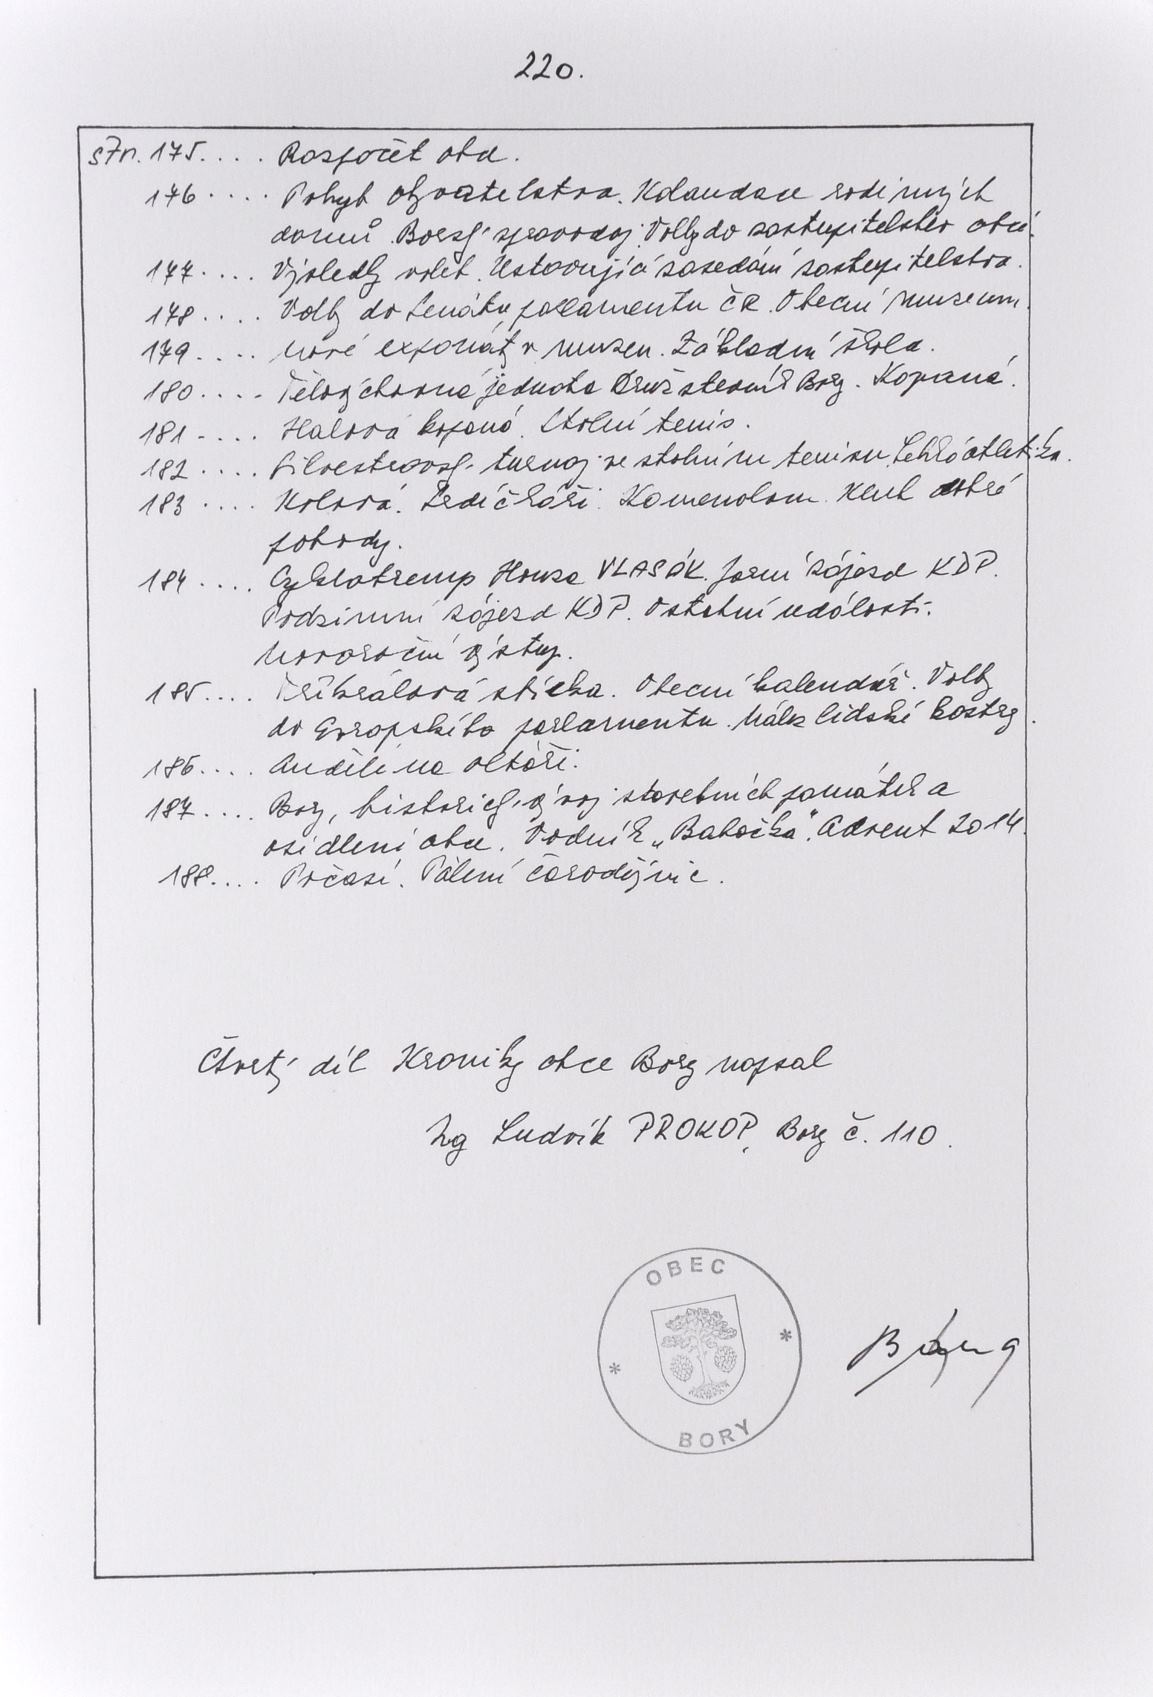 220.
str. 175.... Rozpočet obce.
176.... Pohyb obyvatelstva. Kolaudace rodinných
domů. Borský zpravodaj. Volby do zastupitelstev obcí.
177.... Výsledky voleb. Ustavující zasedání zastupitelstva.
178.... Volby do Senátu parlamentu ČR. Obecní muzeum.
179.... Nové exponáty v muzeu. Základní škola.
180.... Tělovýchovná jednota Družstevník Bory. Kopaná.
181.... Halová kopaná. Stolní tenis.
182.... Silvestrovský turnaj ve stolním tenisu. Lehká atletika.
183.... Kolová. Srdíčkáři. Komenolom. Klub dobré
pohody.
184.... Cyklotremp Honza VLASÁK. Jarní zájezd KDP.
Podzimní zájezd KDP. Ostatní události.
Novoroční výstup.
185.... Tříkrálová sbírka. Obecní kalendář. Volby
do Evropského parlamentu. Nález lidské kostry.
186.... Andělé na oltáři.
187.... Bory, historický vývoj stavebních památek a
osídlení obce. Vodník „Babočka“. Advent 2014.
188.... Počasí. Pálení čarodějnic.
Čtvrtý díl Kroniky obce Bory napsal
Ing Ludvík PROKOP, Bory č. 110.
OBEC
BORY